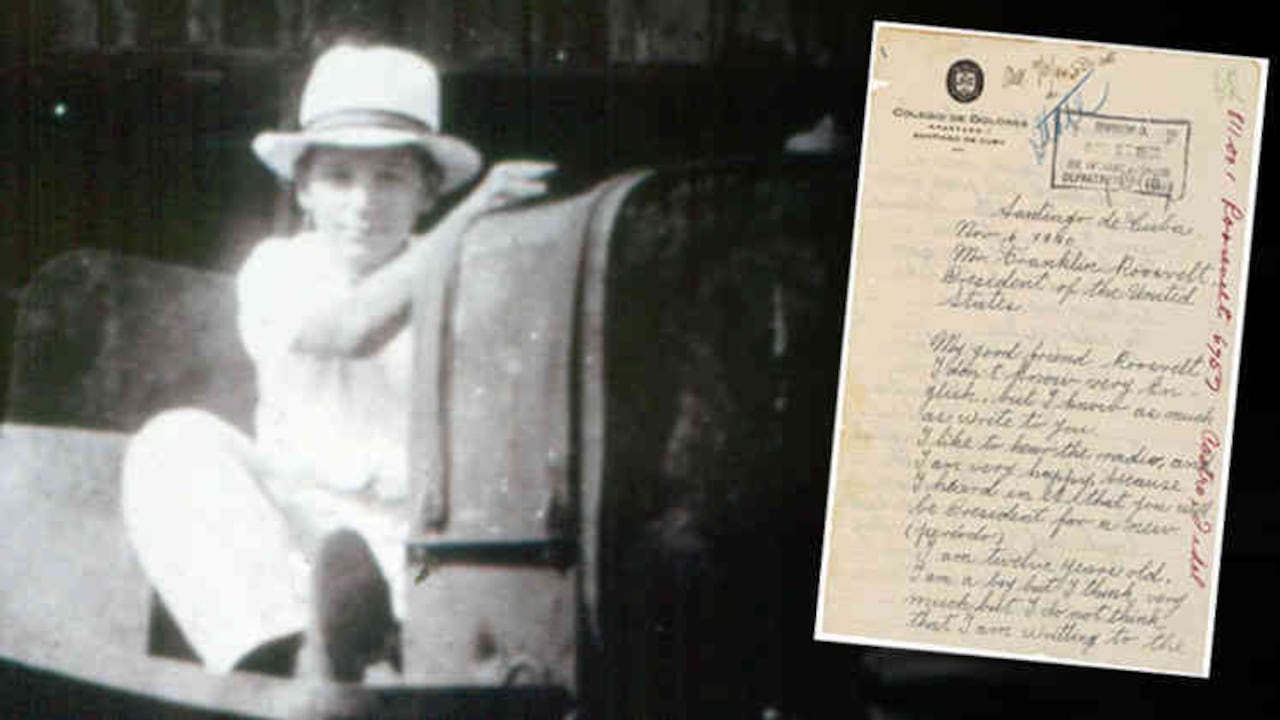 COLEGIO DE DOLORES
APARTADO 1
SANTIAGO DE CUBA
Santiago de Cuba
Nov 6 1940
Mr Franklin Roosvelt
President of the United
States.
My good friend Roosvelt
I don't know very En
glish, but I know as much
as write to you.
I like to hear the radio, and
I am very happy, because
I heard in it, that you will
be President for a new
(periodo)
I am twelve years old.
I am a boy but I think very
much but I do not think
that I am writting to the
811.001 Roosevelt 6959 Castro, Fidel